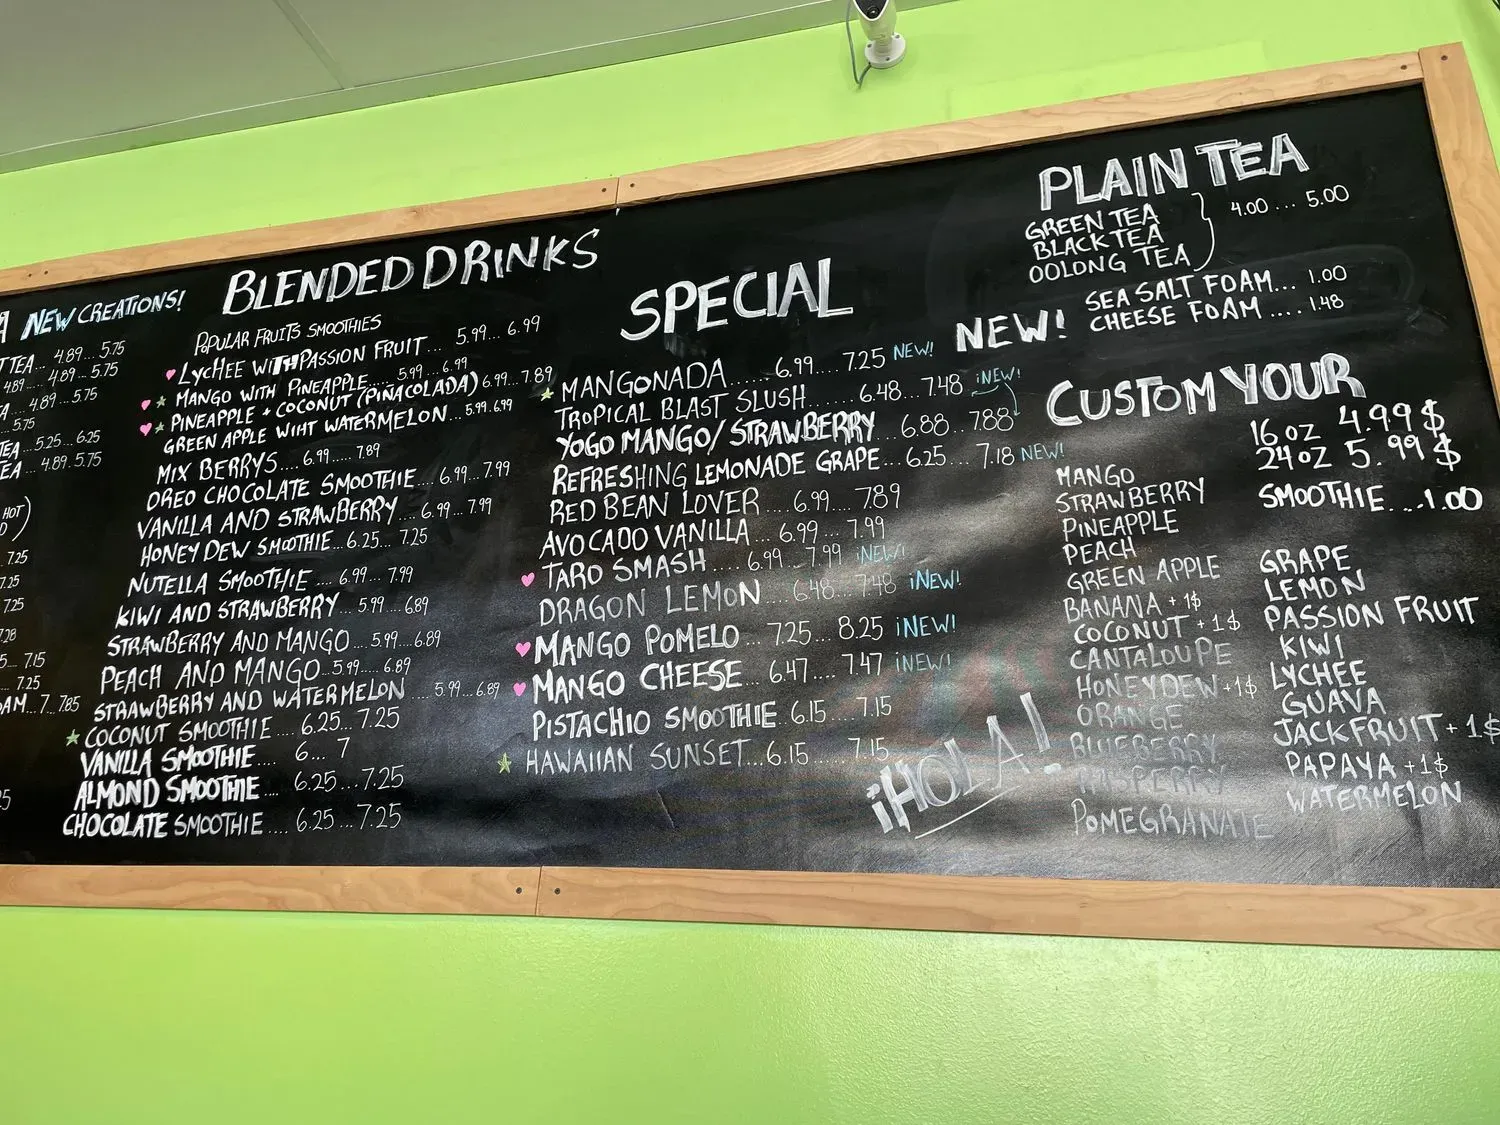 NEW CREATIONS!
TEA... 4.89... 5.75
4.89... 4.89... 5.75
4.89... 5.75
5.75
TEA...5.25...6.25
TEA..4.89.5.75
HOT)
7.25
7.25
7.25
7.28
7.15
7.25
7...7.85
BLENDED DRINKS
POPULAR FRUITS SMOOTHIES
LYCHEE WITH PASSION FRUIT... 5.99...6.99
MANGO WITH PINEAPPLE... 5.99...6.99
PINEAPPLE + COCONUT (PIÑA COLADA) 6.99...7.89
GREEN APPLE WIHT WATERMELON...5.99.6.99
MIX BERRYS.... 6.99.....7.89
OREO CHOCOLATE SMOOTHIE...6.99...7.99
VANILLA AND STRAWBERRY... 6.99...7.99
HONEY DEW SMOOTHIE...6.25... 7.25
NUTELLA SMOOTHIE.... 6.99... 7.99
KIWI AND STRAWBERRY...5.99...6.89
STRAWBERRY AND MANGO...5.99...6.89
PEACH AND MANGO..5.99.... 6.89
STRAWBERRY AND WATERMELON .... 5.99...6.89
COCONUT SMOOTHIE ... 6.25... 7.25
VANILLA SMOOTHIE.... 6... 7
ALMOND SMOOTHIE.... 6.25...7.25
CHOCOLATE SMOOTHIE.... 6.25...7.25
SPECIAL
MANGONADA......6.99....7.25 NEW!
TROPICAL BLAST SLUSH......6.48...7.48 ¡NEW!
YOGO MANGO/STRAWBERRY...6.88... 7.88
REFRESHING LEMONADE GRAPE...6.25... 7.18 NEW!
RED BEAN LOVER ....6.99.... 7.89
AVOCADO VANILLA ....6.99... 7.99
TARO SMASH .... 6.99...7.99 ¡NEW!
DRAGON LEMON....6.48...7.48 ¡NEW!
MANGO POMELO... 7.25... 8.25 ¡NEW!
MANGO CHEESE... 6.47.... 7.47 ¡NEW!
PISTACHIO SMOOTHIE..6.15....7.15
HAWAIIAN SUNSET...6.15.... 7.15
¡HOLA!
PLAIN TEA
GREEN TEA
BLACK TEA
OOLONG TEA
4.00 ... 5.00
NEW!
SEA SALT FOAM... 1.00
CHEESE FOAM .... 1.48
CUSTOM YOUR
16 oz 4.99$
24 oz 5.99$
SMOOTHIE....1.00
MANGO
STRAWBERRY
PINEAPPLE
PEACH
GREEN APPLE
BANANA +1$
COCONUT +1$
CANTALOUPE
HONEYDEW +1$
ORANGE
BLUEBERRY
RASPERRY
POMEGRANATE
GRAPE
LEMON
PASSION FRUIT
KIWI
LYCHEE
GUAVA
JACKFRUIT +1$
PAPAYA +1$
WATERMELON